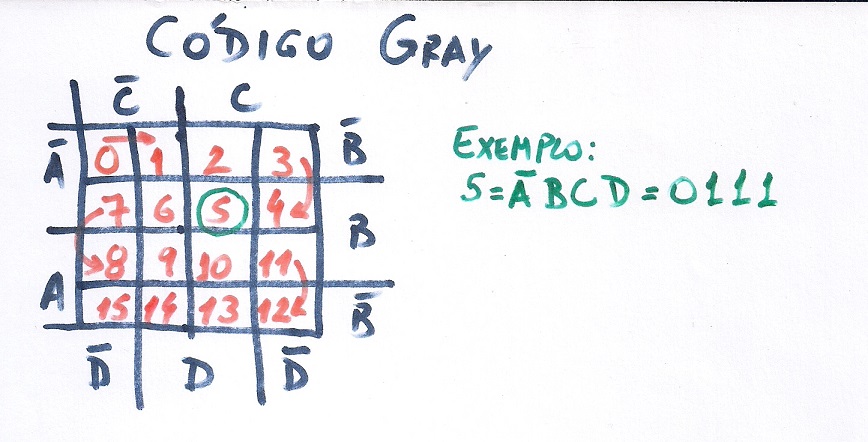 CÓDIGO GRAY
C̄ C
Ā 0 1 2 3 B̄
7 6 5 4 B
8 9 10 11
A 15 14 13 12 B̄
D̄ D D̄
EXEMPLO:
5 = Ā B C D = 0111